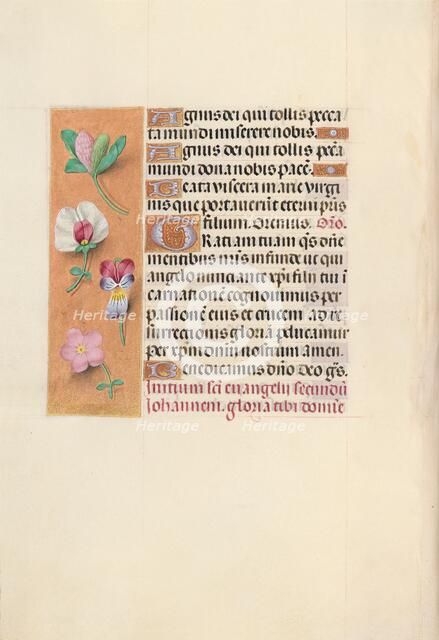 Agnus dei qui tollis pecca
ta mundi miserere nobis.
Agnus dei qui tollis pec̄a
mundi dona nobis pacē.
Beata viscera marie virgi
nis que portaverūt eterni pr̄is
filium. Oremus. Orō.
Gratiam tuam q̄s dn̄e
mentibus nr̄is infunde ut qui
angelo nunciante xp̄i filii tui ī
carnationē cognovimus per
passionē eius et crucem ad re
surrectionis gloriā perducamur
per xp̄m dn̄m nostrum amen.
Benedicamus dn̄o Deo gr̄s.
Initium sc̄i evangelii secundū
Johannem. gloria tibi domīe
Heritage
Heritage
Heritage
Heritage
Heritage
Heritage